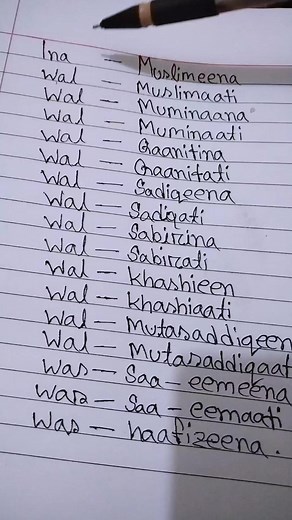 Ina — Muslimeena
Wal — Muslimaati
Wal — Muminaana
Wal — Muminaati
Wal — Gaanitina
Wal — Gaanitati
Wal — Sadiqeena
Wal — Sadiqati
Wal — Sabirina
Wal — Sabirati
Wal — Khashieen
Wal — Khashiaati
Wal — Mutasaddiqeen
Wal — Mutasaddiqaat
Was — Saa - eemeena
Was — Saa - eemaati
Was — haafizeena.